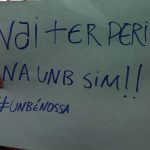 VAI TER PERI
NA UNB SIM!!
#UNBÉNOSSA